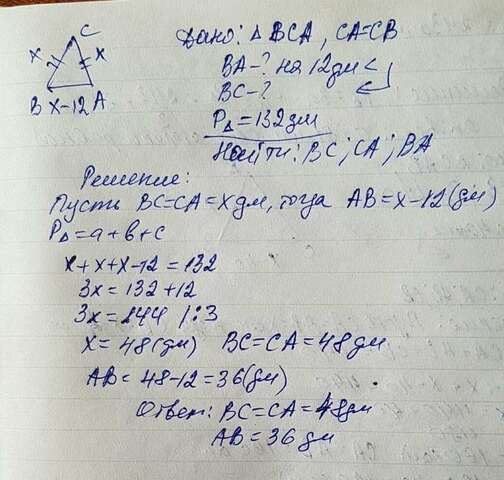 C
x x
B x-12 A
Дано: Δ BCA, CA=CB
BA-? на 12дм<
BC-?
PΔ=132дм
Найти: BC; CA; BA
Решение:
Пусть BC=CA=x дм, тогда AB=x-12(дм)
PΔ=a+b+c
x+x+x-12=132
3x=132+12
3x=144 /:3
x=48(дм) BC=CA=48дм
AB=48-12=36(дм)
Ответ: BC=CA=48дм
AB=36дм